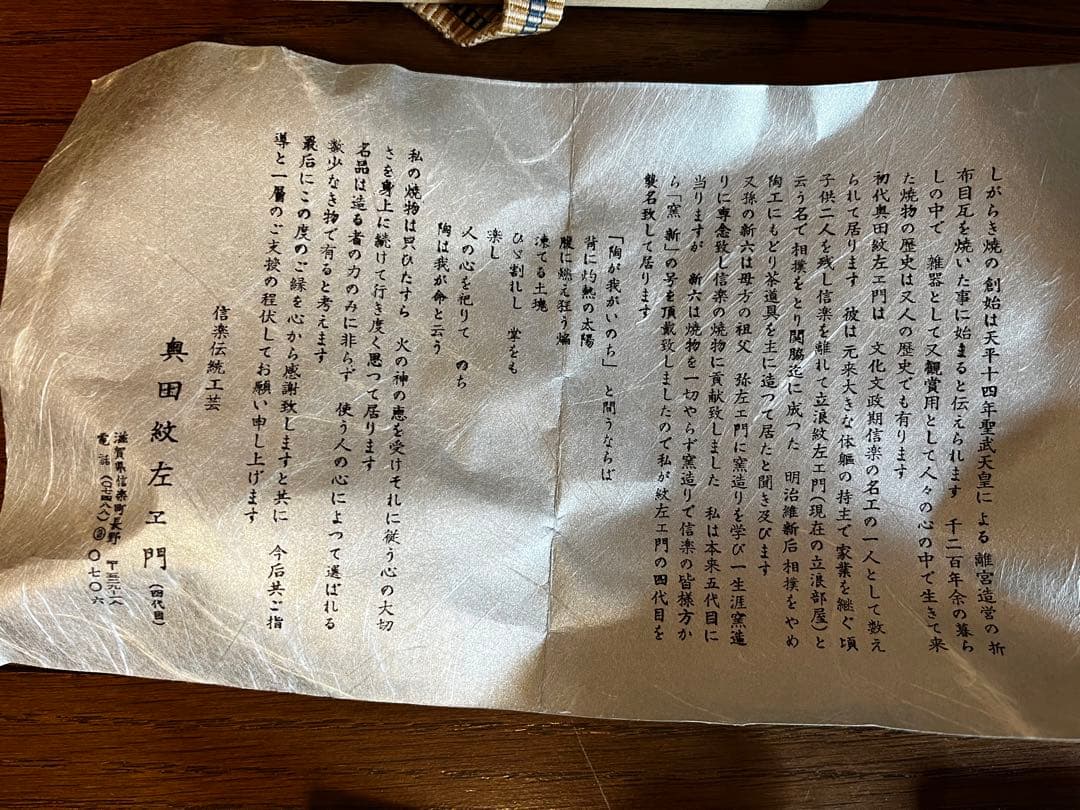 しがらき焼の創始は天平十四年聖武天皇による離宮造営の折
布目瓦を焼いた事に始まると伝えられます 千二百年余の暮ら
しの中で 雑器として又観賞用として人々の心の中で生きて来
た焼物の歴史は又人の歴史でも有ります
初代奥田紋左エ門は 文化文政期信楽の名工の一人として数え
られて居ります 彼は元来大きな体軀の持主で家業を継ぐ頃
子供二人を残し信楽を離れて立浪紋左エ門(現在の立浪部屋)と
云う名で相撲をとり関脇迄に成った 明治維新后相撲をやめ
陶工にもどり茶道具を主に造つて居たと聞き及びます
又孫の新六は母方の祖父 弥左エ門に窯造りを学び一生涯窯造
りに専念致し信楽の焼物に貢献致しました 私は本来五代目に
当りますが 新六は焼物を一切やらず窯造りで信楽の皆様方か
ら「窯新」の号を頂戴致しましたので私が紋左エ門の四代目を
襲名致して居ります
「陶が我がいのち」と問うならば
背に灼熱の太陽
腹に燃え狂う焔
凍てる土塊
ひゞ割れし 掌をも
楽し
人の心を祀りて のち
陶は我が命と云う
私の焼物は只ひたすら 火の神の恵を受けそれに従う心の大切
さを身上に続けて行き度く思つて居ります
名品は造る者の力のみに非らず 使う人の心によつて選ばれる
数少なき物で有ると考えます
最后にこの度のご縁を心から感謝致しますと共に 今后共ご指
導と一層のご支援の程伏してお願い申し上げます
信楽伝統工芸
奥田紋左エ門(四代目)
滋賀県信楽町長野 〒五二九-一八
電話(〇七四八八)②〇七〇六